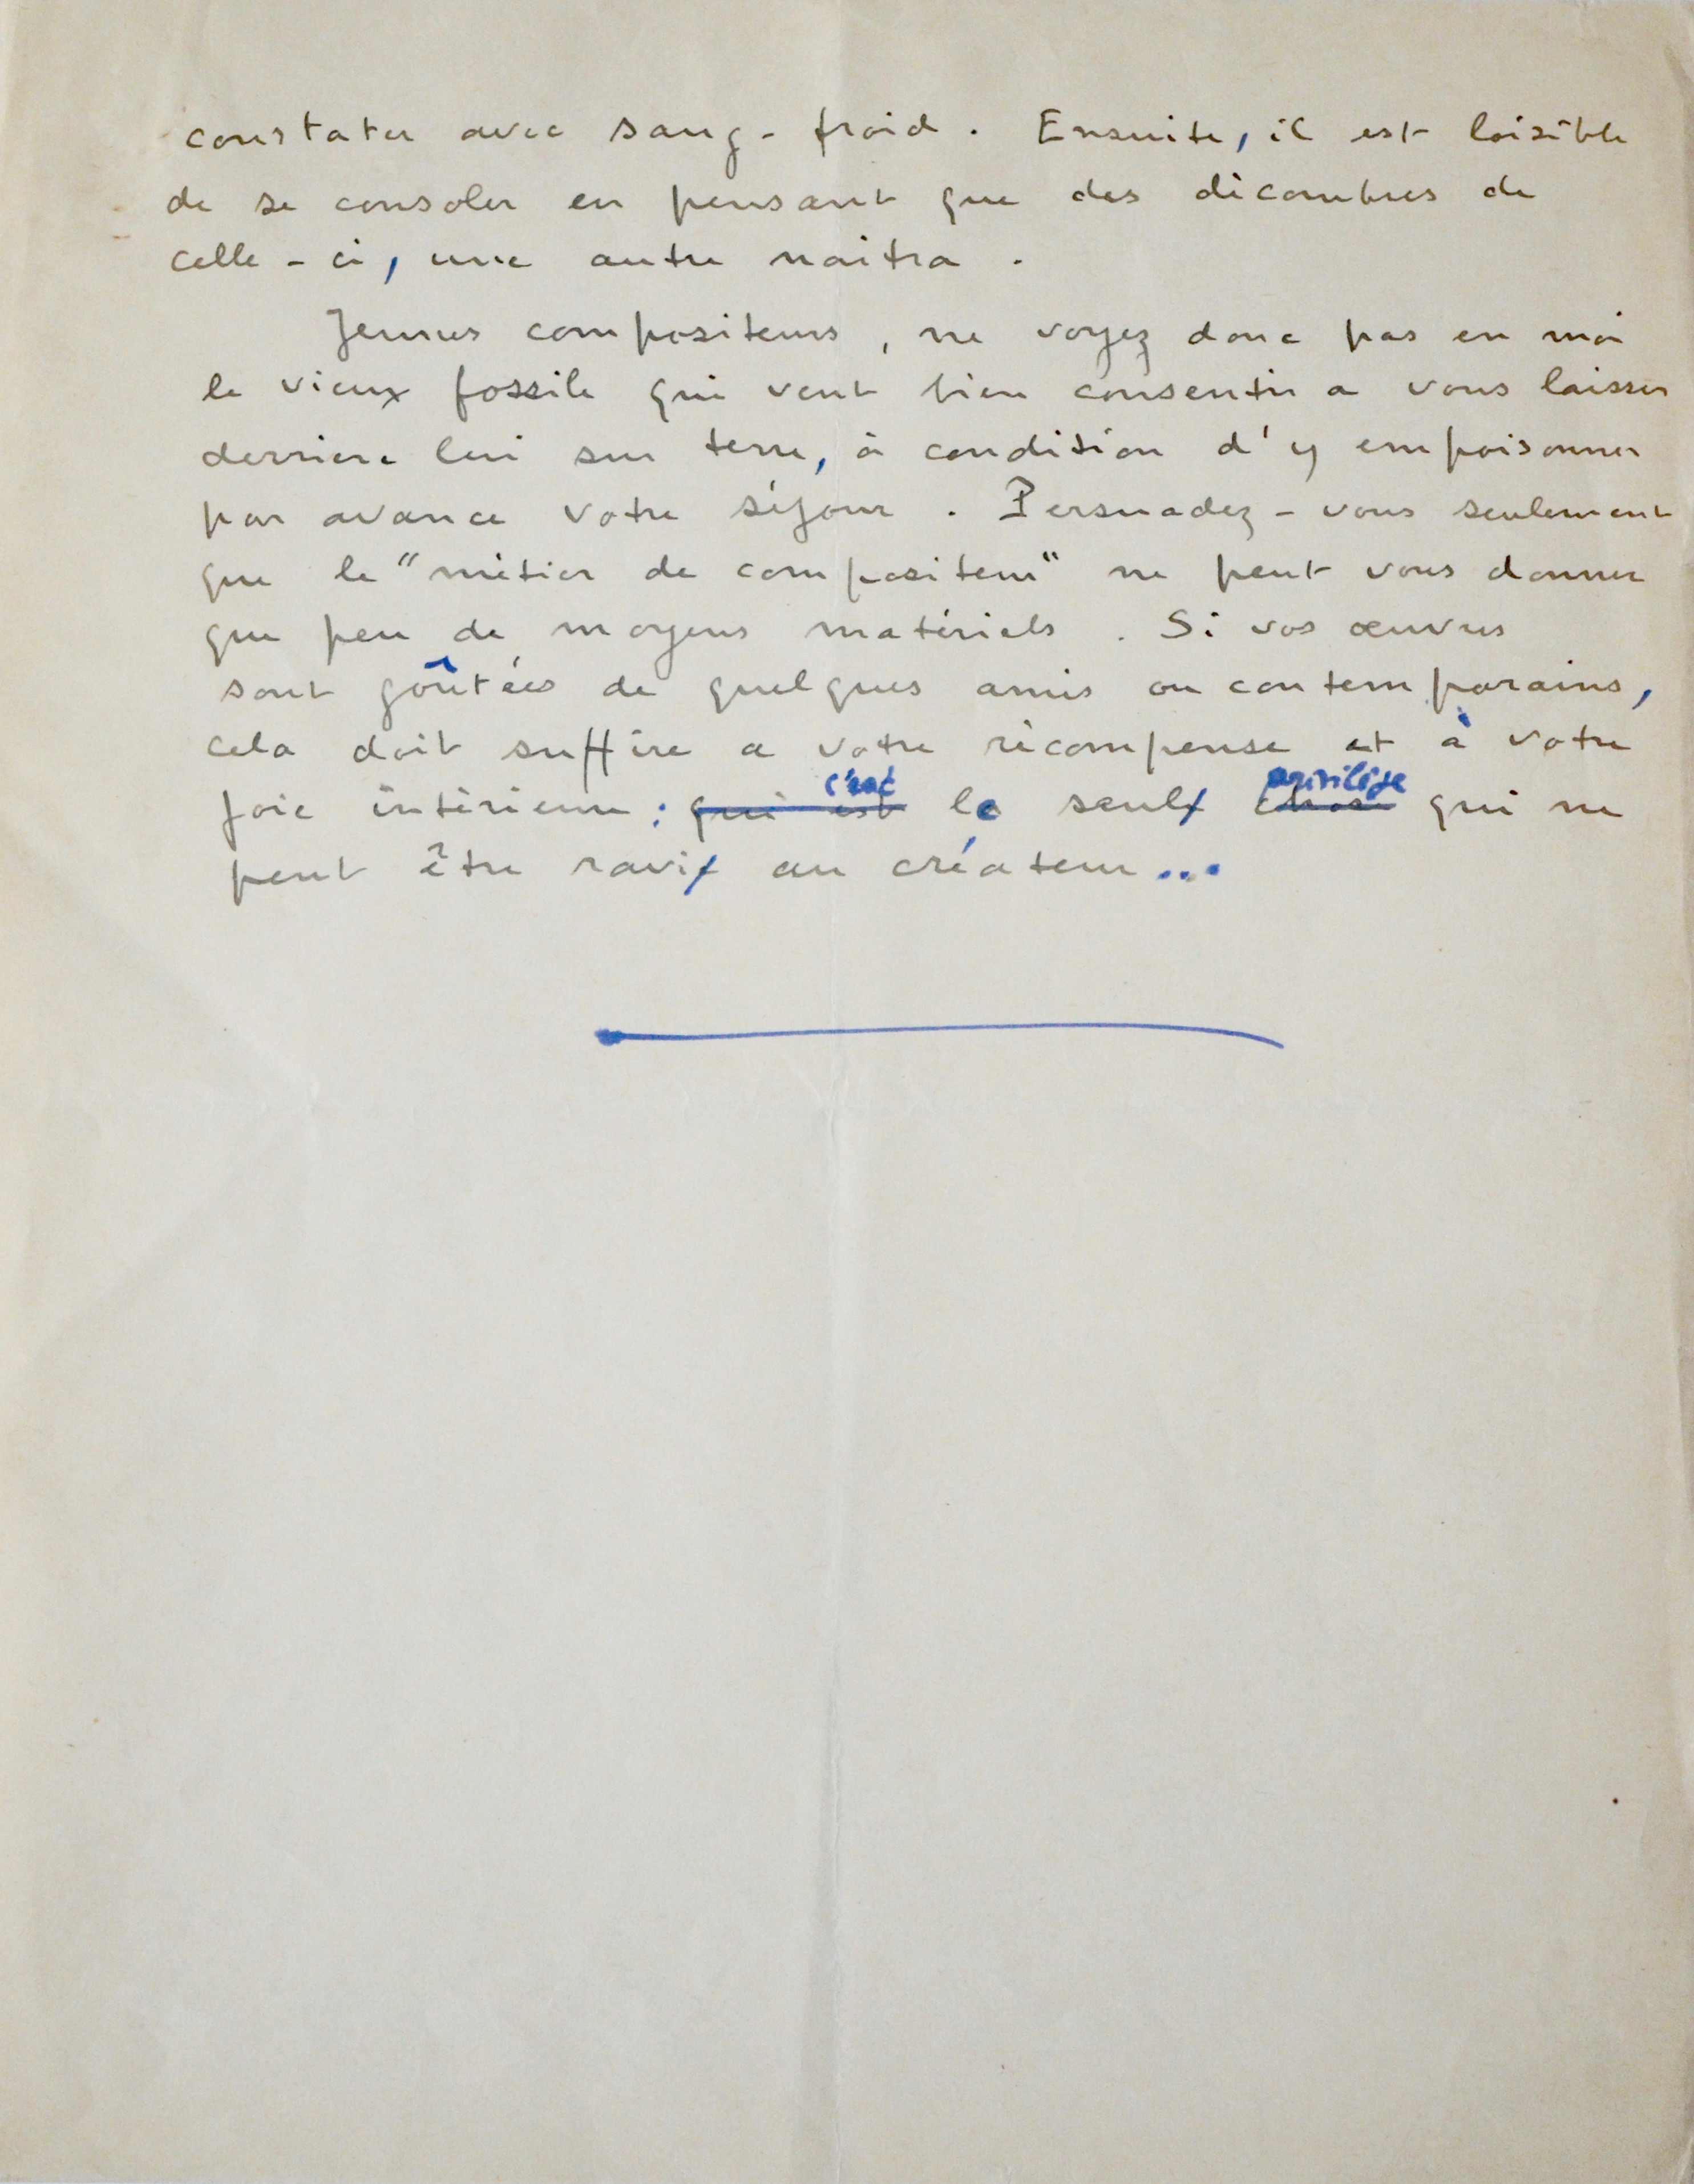 constater avec sang-froid. Ensuite, il est loisible
de se consoler en pensant que des décombres de
celle-ci, une autre naitra.
Jeunes compositeurs, ne voyez donc pas en moi
le vieux fossile qui veut bien consentir a vous laisser
derriere lui sur terre, à condition d'y empoisonner
par avance votre séjour. Persuadez-vous seulement
que le "métier de compositeur" ne peut vous donner
que peu de moyens matériels. Si vos œuvres
sont goûtées de quelques amis ou contemporains,
cela doit suffire a votre récompense et à votre
c'est privilège
joie intérieure : qui est le seul chose qui ne
peut être ravi au créateur...